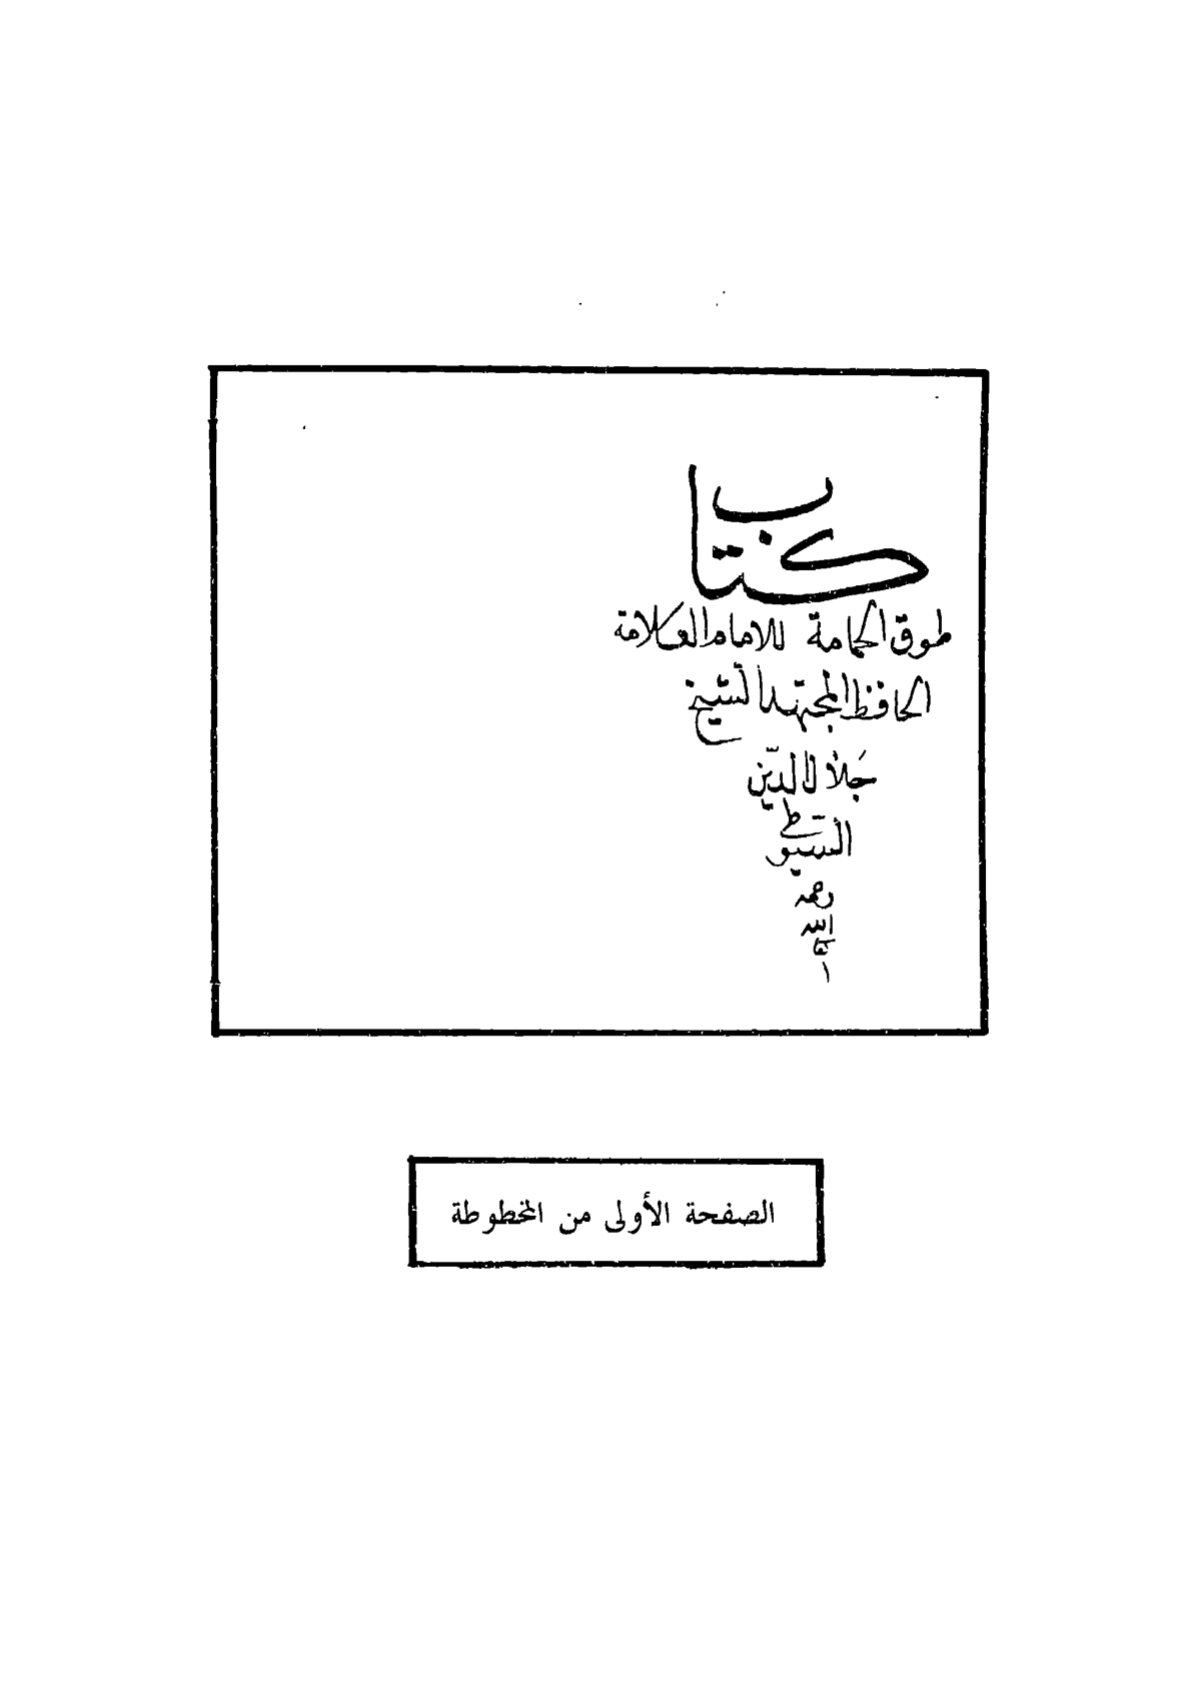 كتاب
طوق الحمامة للامام العلامة
الحافظ المجتهد الشيخ
جلال الدين
السيوطي
رحمه
الله
تعا
الصفحة الأولى من المخطوطة